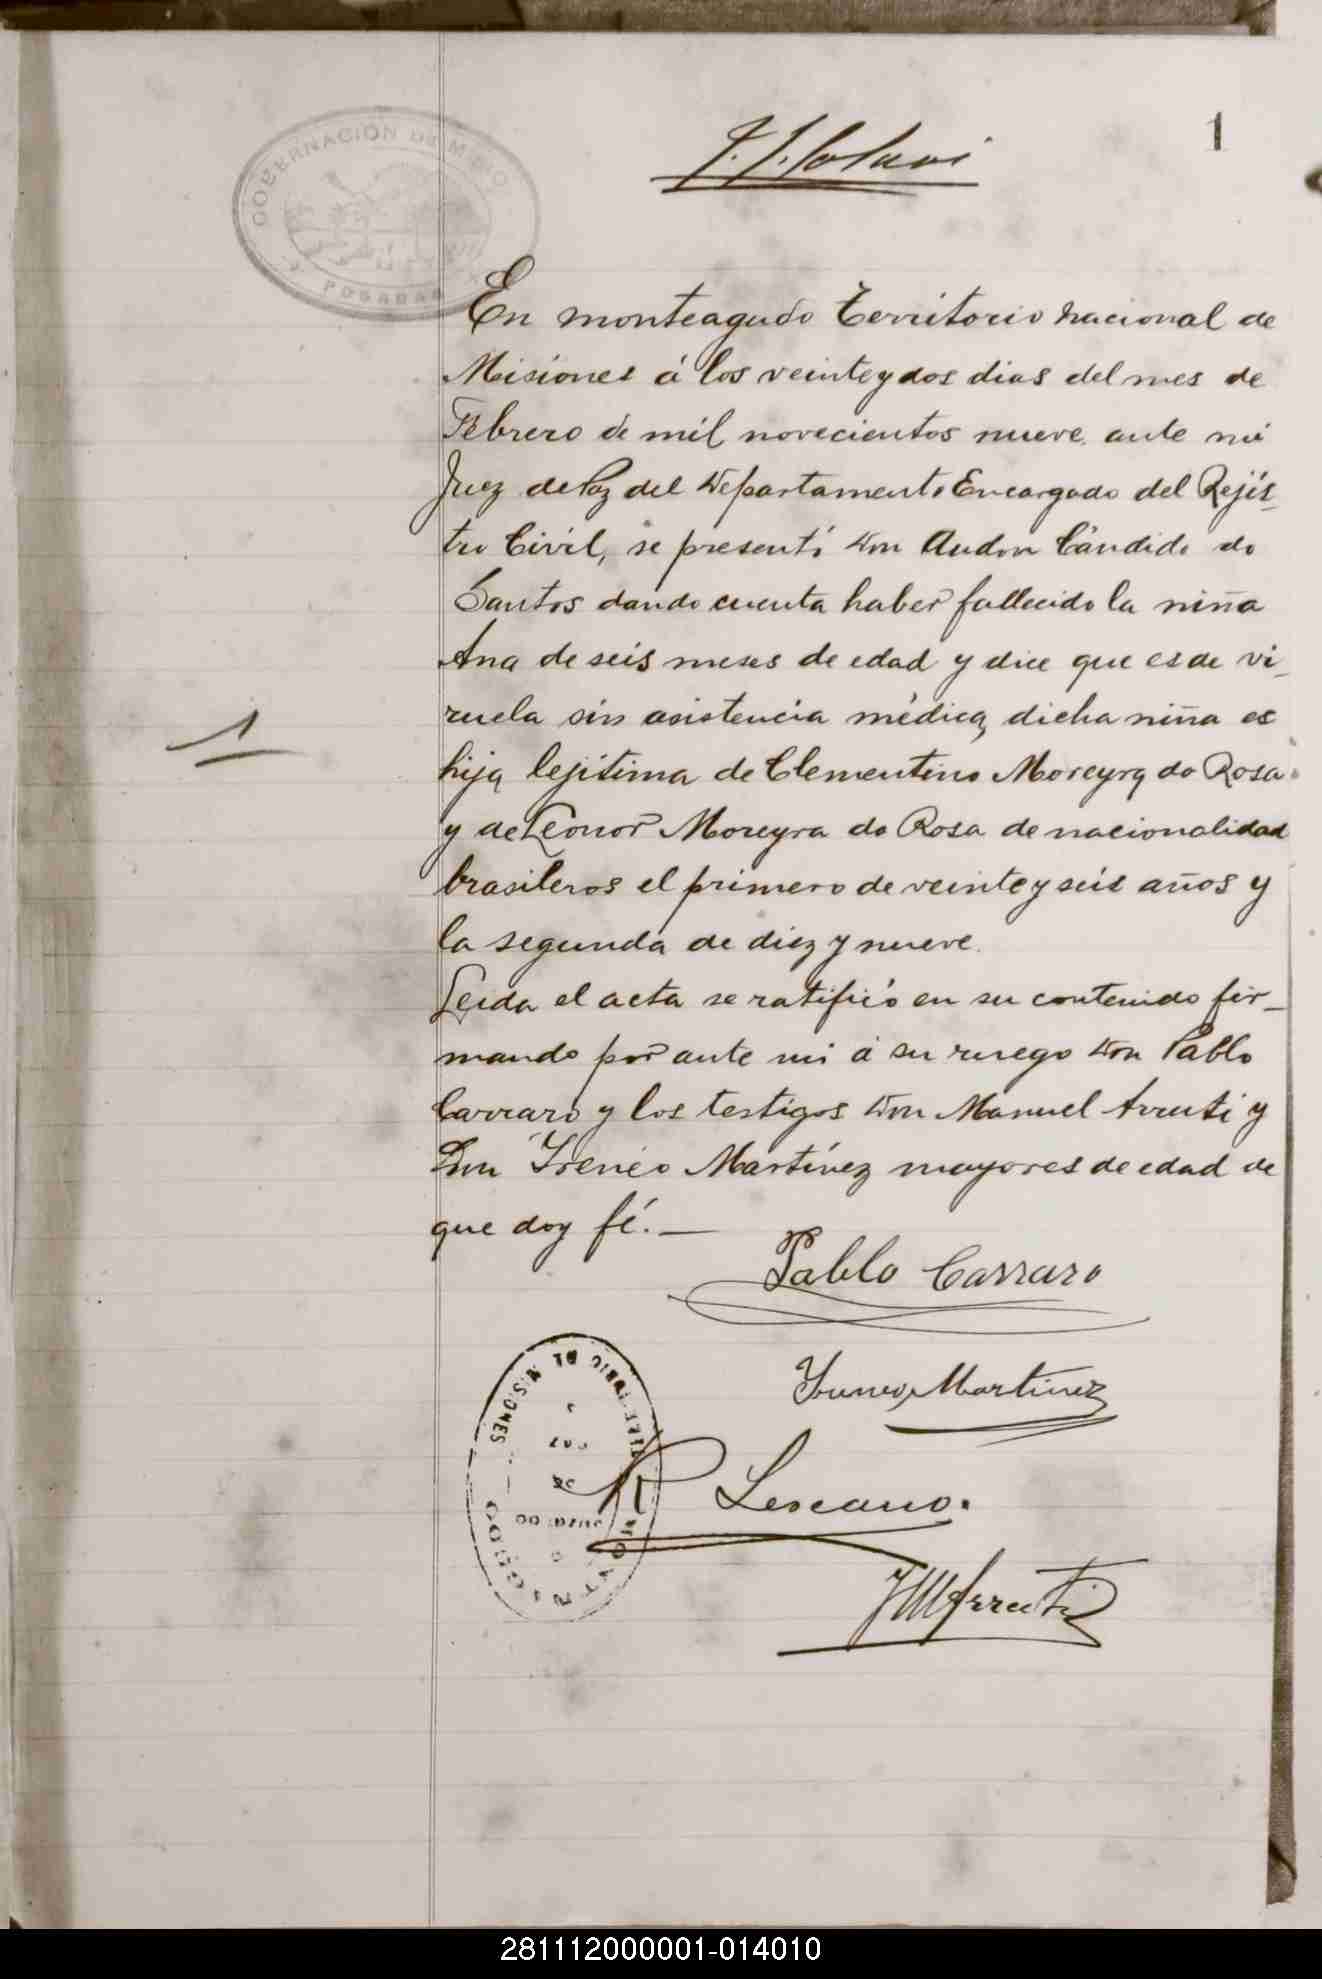 1
GOBERNACIÓN DE MISIO
POSADAS
En monteagudo Territorio Nacional de
Misiones á los veinte y dos dias del mes de
Febrero de mil novecientos nueve, ante mi
Juez de Paz del Departamento Encargado del Rejis-
tro Civil, se presentó Don Audon Cándido do
Santos dando cuenta haber fallecido la niña
Ana de seis meses de edad y dice que es de vi-
ruela sin asistencia médica, dicha niña es
1
hija lejítima de Clementino Moreyra do Rosa
y de Leonor Moreyra do Rosa de nacionalidad
brasileros el primero de veinte y seis años y
la segunda de diez y nueve.
Leida el acta se ratificó en su contenido fir-
mando por ante mi á su ruego Don Pablo
Carraro y los testigos Don Manuel Arruti y
Don Ireneo Martínez mayores de edad de
que doy fé.—
Pablo Carraro
Ireneo Martinez
Lescano.
Arruti
TERRITORIO DE MISIONES
281112000001-014010